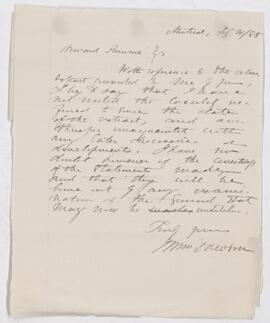 Montreal, 
Howard 
With reference to the above
extract 
I beg to say that I have
not visited the locality re-
ferred to since the date
of the extract, and am
therefore unacquainted with
any later discoveries or
developments. I have no
doubt however of the correctness
of the statements made
and that they will be
borne out by any exami-
nation of the ground that
may now be undertaken
Truly yours
J Wm Dawson